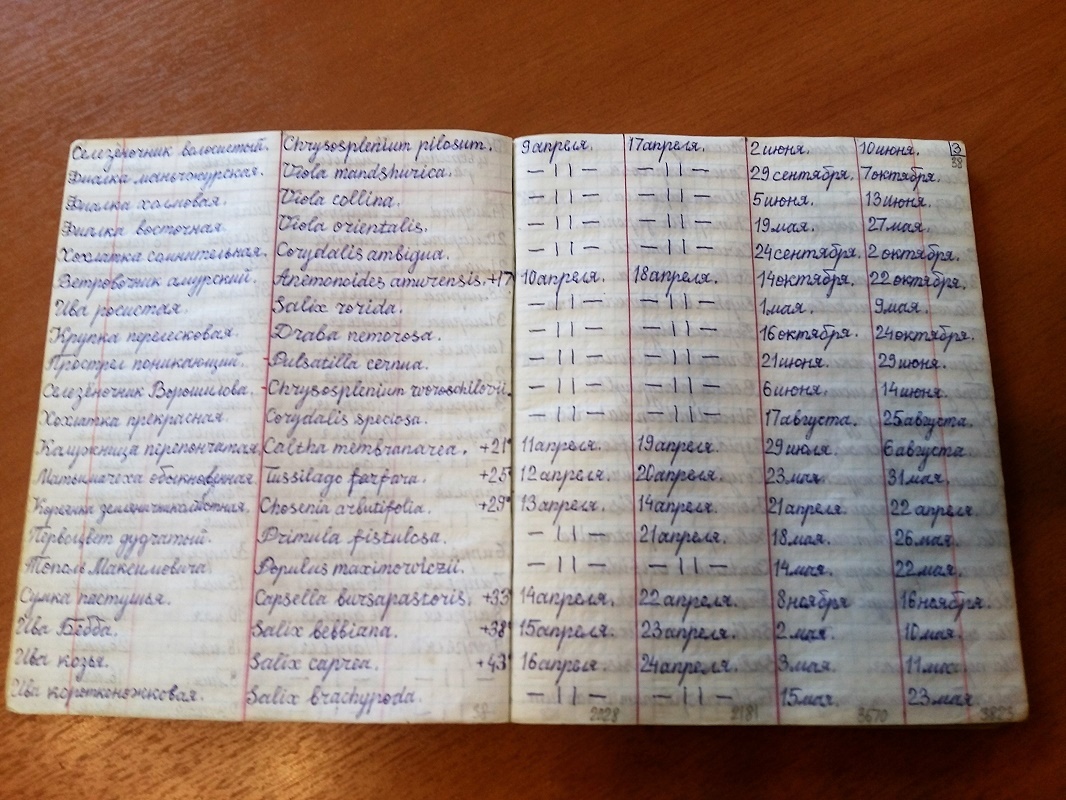 Селезёночник волосистый. Chrysosplenium pilosum. 9 апреля. 17 апреля. 2 июня. 10 июня. 3
38
Фиалка маньчжурская. Viola mandshurica. — 11 — — 11 — 29 сентября. 7 октября.
Фиалка холмовая. Viola collina. — 11 — — 11 — 5 июня. 13 июня.
Фиалка восточная. Viola orientalis. — 11 — — 11 — 19 мая. 27 мая.
Хохлатка сомнительная. Corydalis ambigua. — 11 — — 11 — 24 сентября. 2 октября.
Ветровочник амурский. Anemonoides amurensis. +17 10 апреля. 18 апреля. 14 октября. 22 октября.
Ива росистая. Salix rorida. — 11 — — 11 — 1 мая. 9 мая.
Крупка перелесковая. Draba nemorosa. — 11 — — 11 — 16 октября. 24 октября.
Прострел поникающий. Pulsatilla cernua. — 11 — — 11 — 21 июня. 29 июня.
Селезёночник Ворошилова. Chrysosplenium woroschilovii. — 11 — — 11 — 6 июня. 14 июня.
Хохлатка прекрасная. Corydalis speciosa. — 11 — — 11 — 17 августа. 25 августа.
Калужница перепончатая. Caltha membranacea. +21° 11 апреля. 19 апреля. 29 июля. 6 августа
Матьимачеха обыкновенная. Tussilago farfara. +25° 12 апреля. 20 апреля. 23 мая. 31 мая.
Корянка земляничниколистная. Chosenia arbutifolia. +29° 13 апреля. 14 апреля. 21 апреля. 22 апреля.
Первоцвет дудчатый. Primula fistulosa. — 11 — 21 апреля. 18 мая. 26 мая.
Тополь Максимовича Populus maximowiczii. — 11 — — 11 — 14 мая. 22 мая.
Сумка пастушья. Capsella bursapastoris. +33° 14 апреля. 22 апреля. 8 ноября 16 ноября.
Ива Бебба. Salix bebbiana. +38° 15 апреля. 23 апреля. 2 мая. 10 мая.
Ива козья. Salix caprea. +43° 16 апреля. 24 апреля. 3 мая. 11 мая.
Ива коротконожковая. Salix brachypoda. — 11 — — 11 — 15 мая. 23 мая.
2028 2181 3670 3823